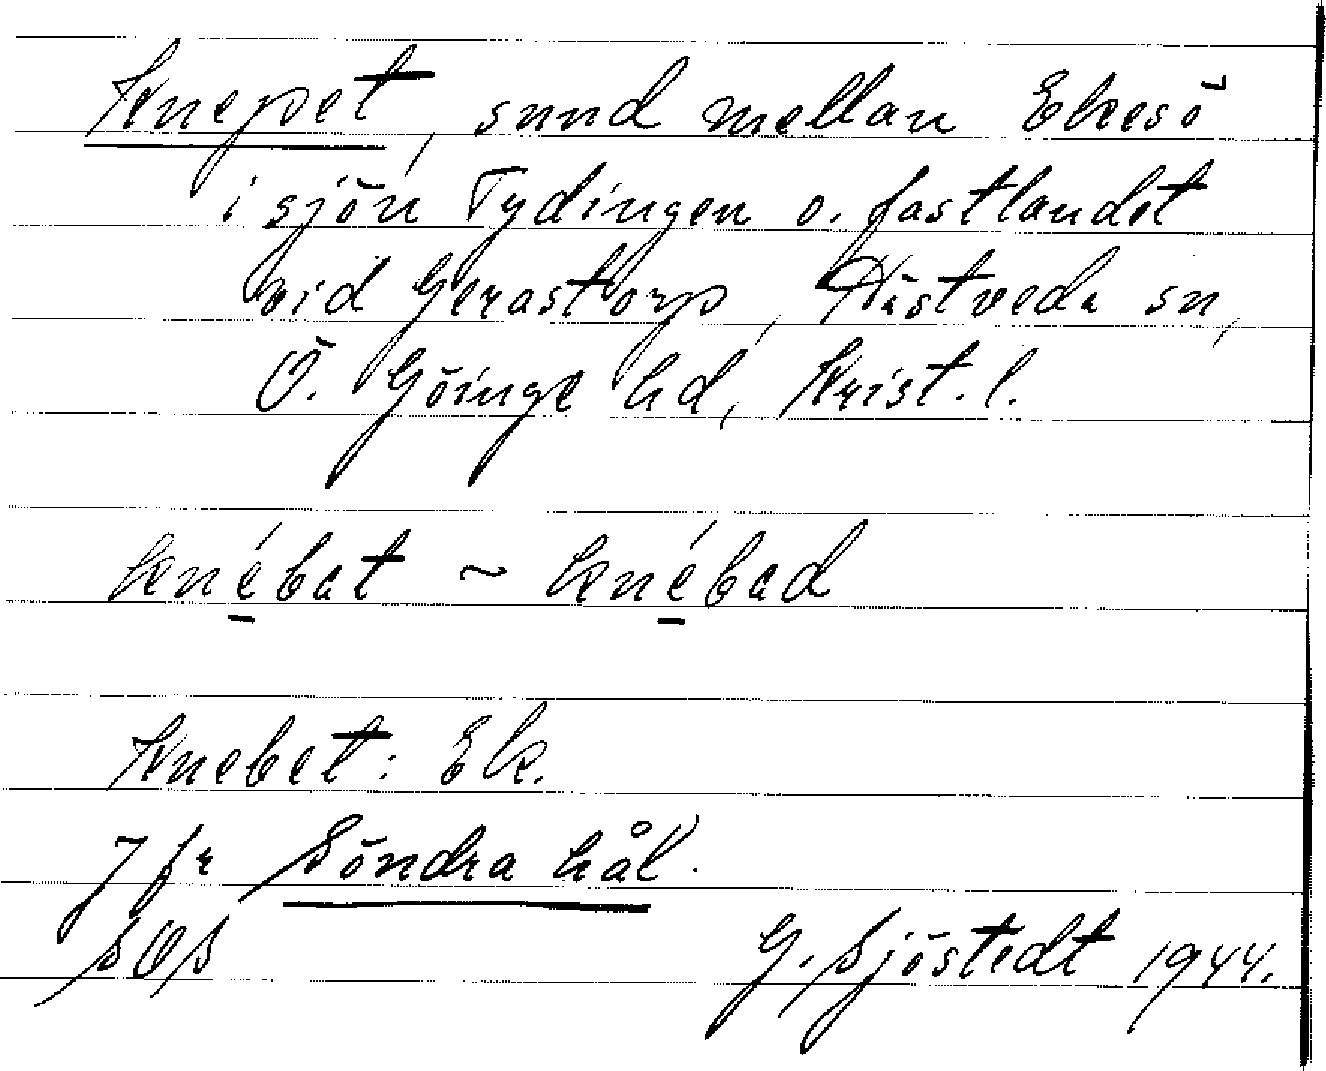 Knepet, sund mellan Ekesö
i sjön Tydingen o. fastlandet
vid Gerastorp, Hästveda sn,
Ö. Göinge hd, Krist. l.
knébat ~ knébad
Knebet: Ek.
Jfr Söndra hål.
SOS
G. Sjöstedt 1944.